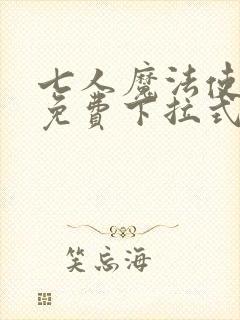 七人魔法使
免费下拉式
笑忘海